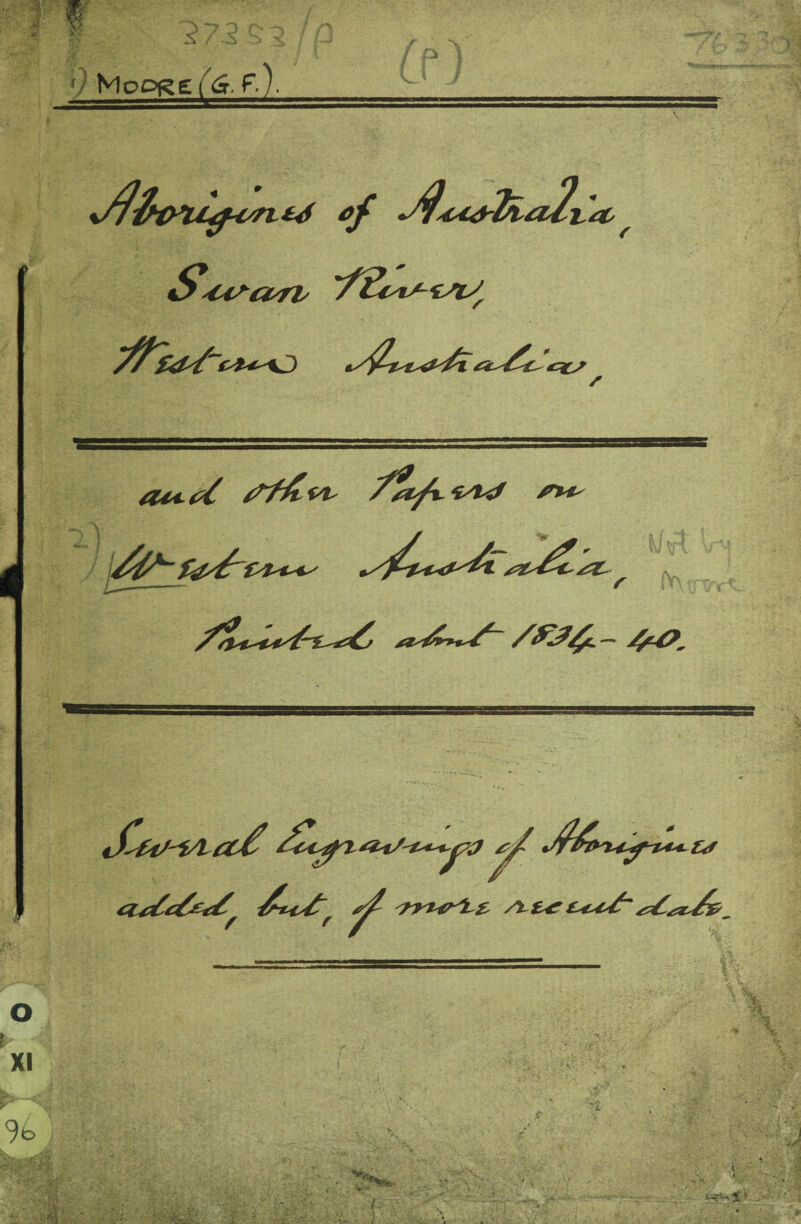 37353/p
(P)
76330
1) MOORE (G. F.).
Aborigines of Australia,
Swan River,
Western Australia,
and other Papers on
2) Western Australia,
Not by
Moore
Printed about 1834-40.
Several Engravings of Aborigines
added, but, of more recent date.
O
XI
96